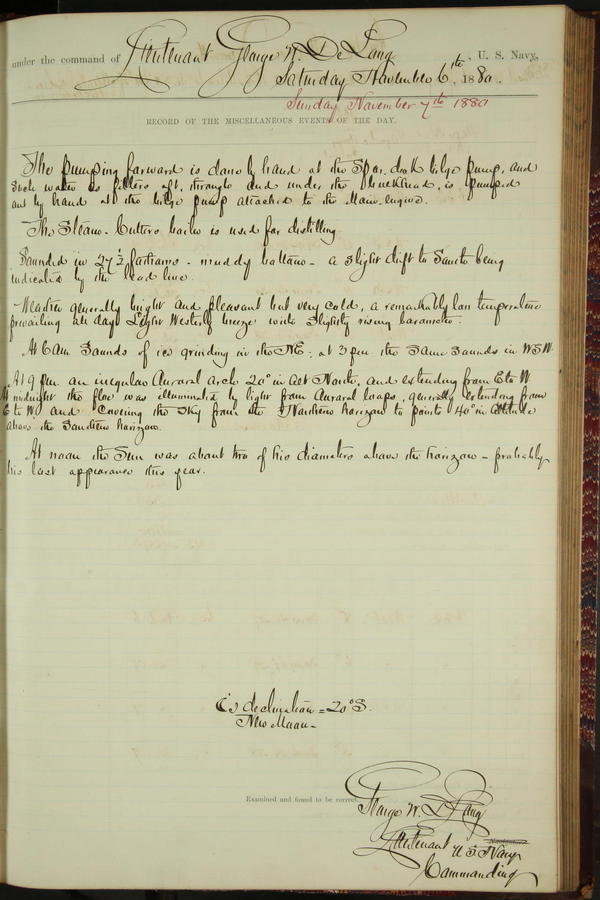 under the command of Lieutenant George W. De Long, U. S. Navy,
Saturday November 6th, 1880.
Sunday November 7th 1880
RECORD OF THE MISCELLANEOUS EVENTS OF THE DAY.
The pumping forward is done by hand at the Spar deck bilge pump, and
such water as filters aft, through and under the bulkhead, is pumped
out by hand at the bilge pump attached to the Main engine.
The Steam-Cutters boiler is used for distilling
Sounded in 27 1/2 fathoms - muddy bottom - a slight drift to South being
indicated by the lead line.
Weather generally bright and pleasant but very cold, a remarkably low temperature
prevailing all day. Light Westerly breeze with slightly rising barometer.
At 6 am sounds of ice grinding in the NE: at 3 pm the same sounds in WSW.
At 9 pm an irregular Auroral arch 20° in alt North, and extending from E to W
At midnight the floe was illuminated by light from Auroral loops, generally extending from
E to W and covering the sky from the Northern horizon to points 40° in altitude
above the Southern horizon.
At noon the Sun was about two of his diameters above the horizon - probably
his last appearance this year.
☾'s declination = 20° S.
New Moon -
Examined and found to be correct.
George W. De Long
Lieutenant U. S. Navy
Commanding